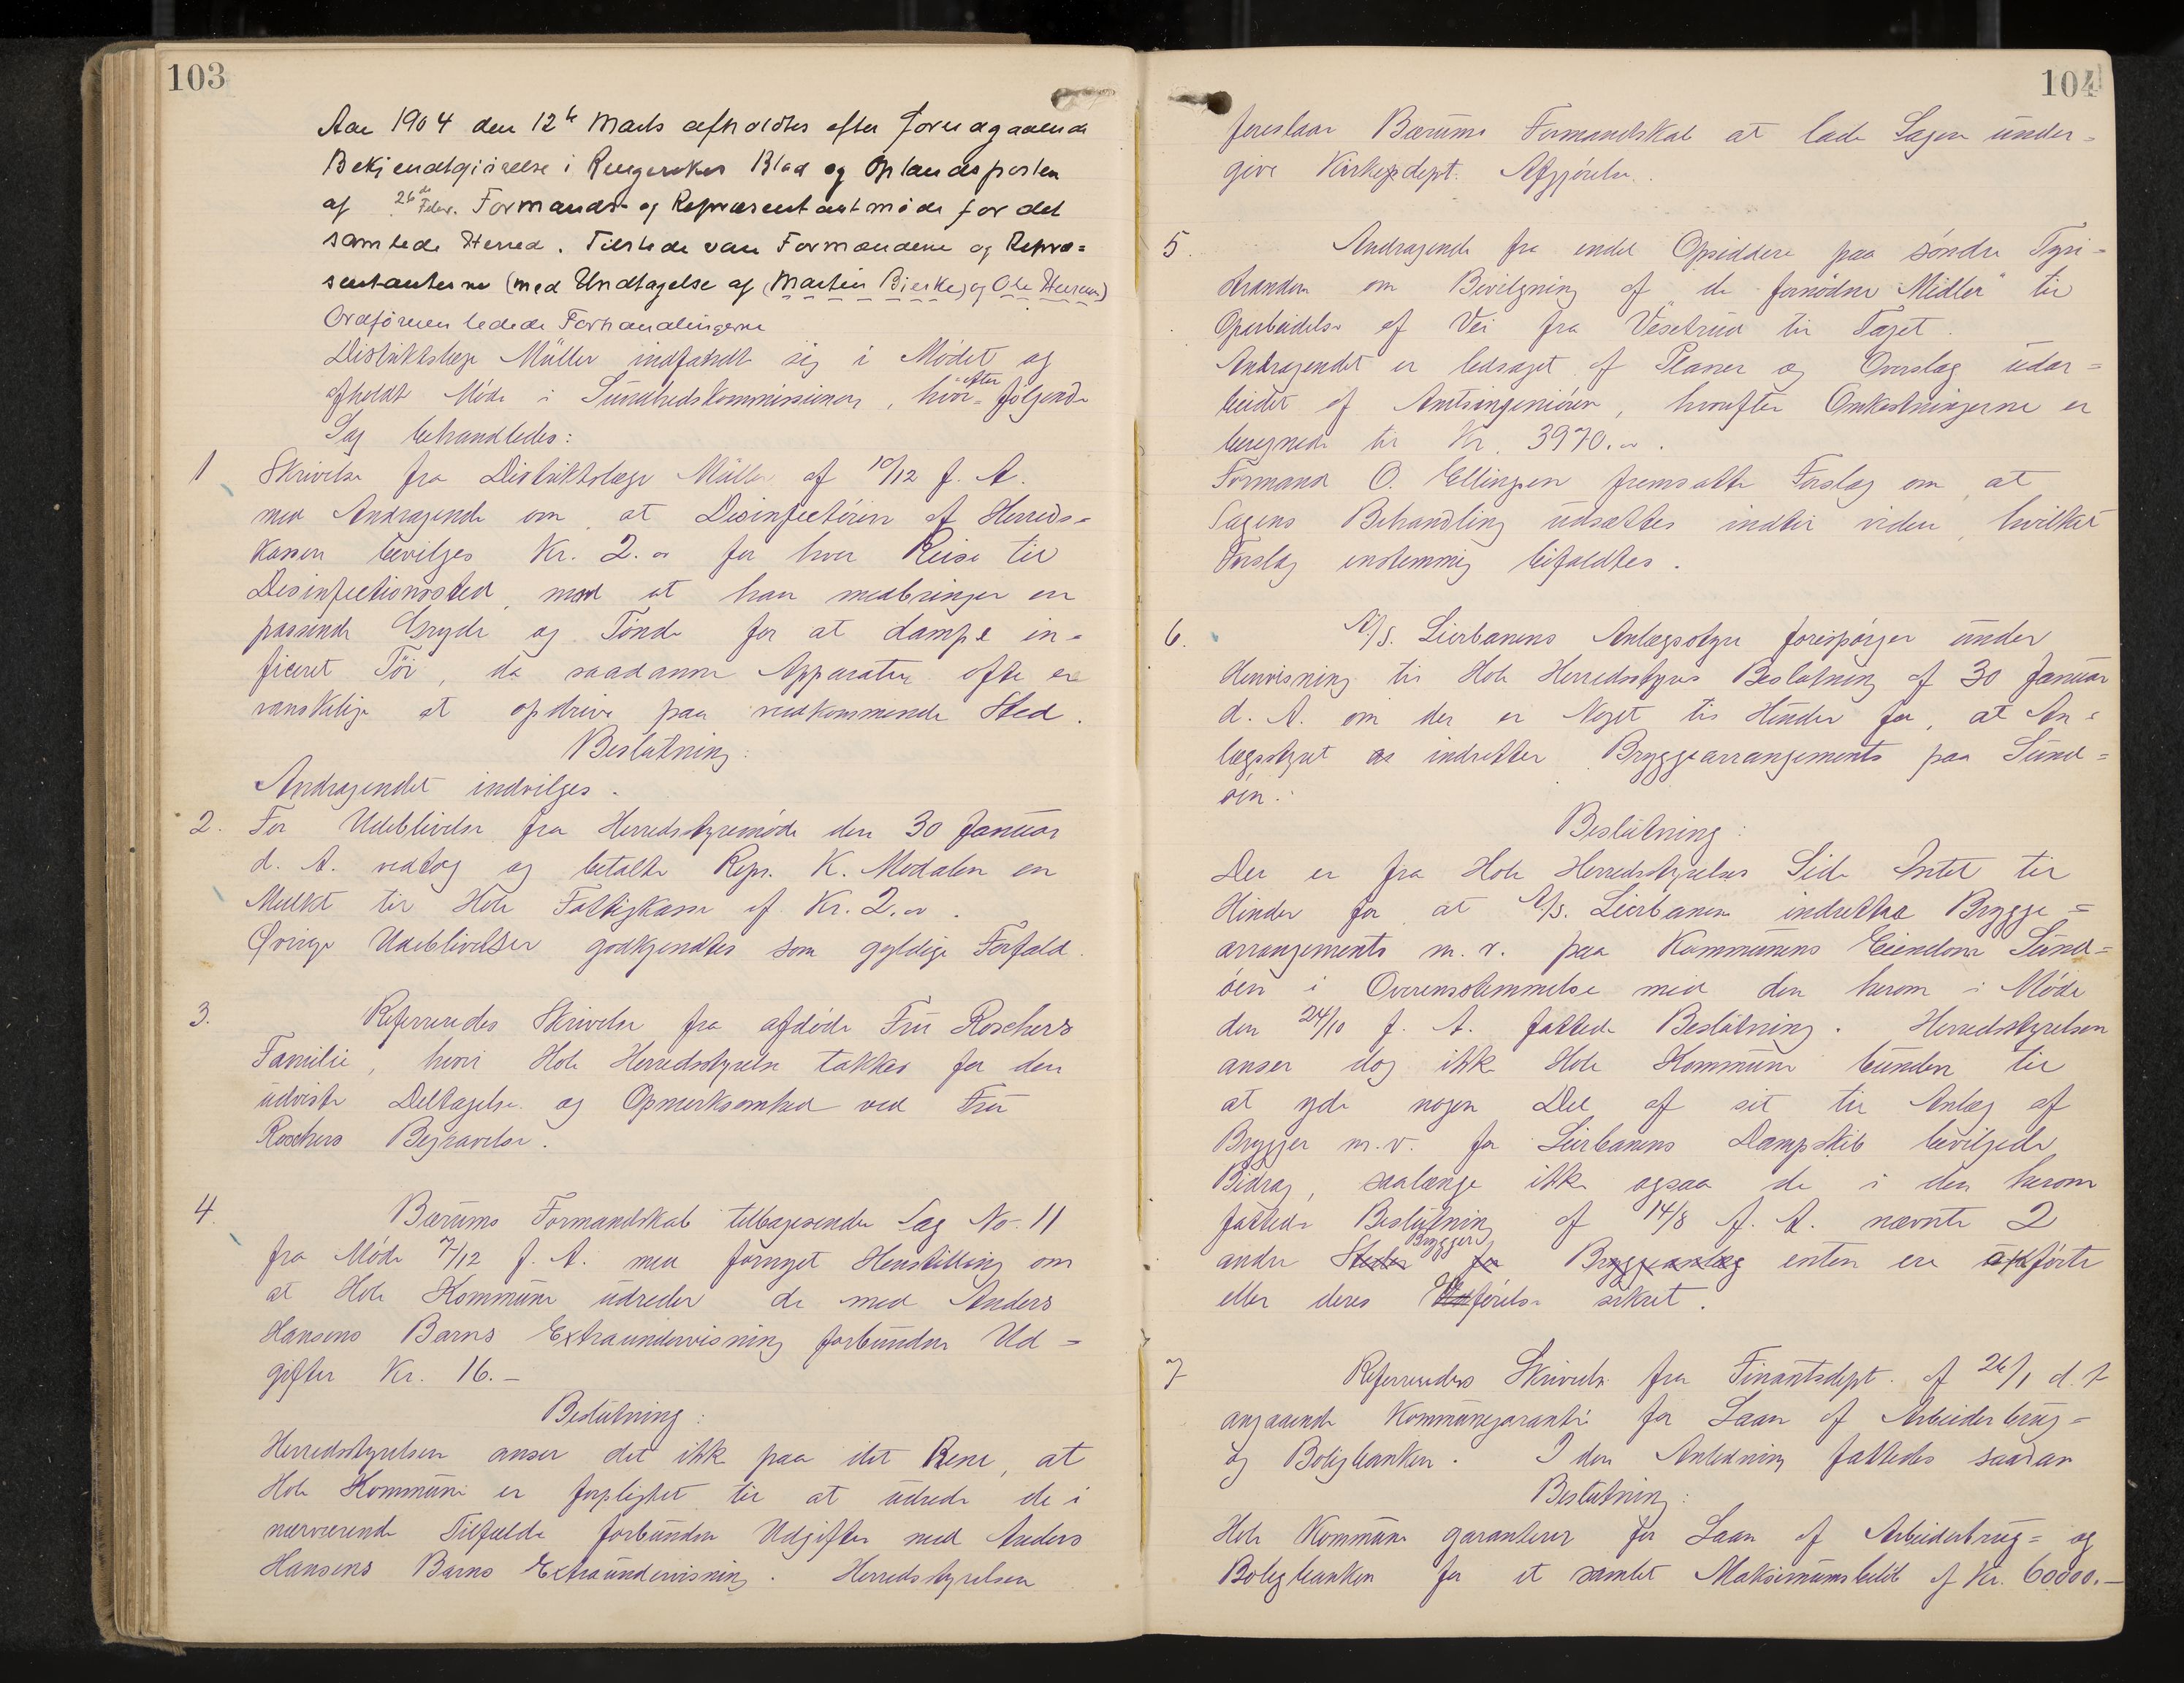 103
Aar 1904 den 12te Marts afholdtes efter forudgaaende
Bekjendtgjørelse i Ringerikes Blad og Oplandsposten
af 26de Febr. Formands- og Repræsentantmøde for det
samlede Herred. Tilstede var Formændene og Repræ=
sentanterne (med Undtagelse af (Martin Bjerke) og Ole)
Ordføreren ledede Forhandlingerne
Distriktslæge Müller indfandt sig i Mødet og
afholdt Møde i Sundhedskommissionen, hvor=efter følgende
Sag behandledes:
1 Skrivelse fra Distriktslæge Müller af 10/12 f. A.
med Andragende om, at Desinfectøren af Herreds=
kassen bevilges Kr. 2.00 for hver Reise til
Desinfectionssted, mod at han medbringer en
passende Gryde og Tønde for at dampe in=
ficeret Tøi, da saadanne Apparater ofte er
vanskelige at opdrive paa vedkommende Sted.
Beslutning:
Andragendet indvilges.
2. For Udeblivelse fra Herredsstyremøde den 30 Januar
d. A. vedtog og betalte Repr. K. Modalen en
Mulkt til Hole Fattigkasse af Kr. 2.00.
Øvrige Udeblivelser godkjendtes som gyldige Forfald.
3. Refereredes Skrivelse fra afdøde Fru Roschers
Familie, hvori Hole Herredsstyrelse takkes for den
udviste Deltagelse og Opmerksomhed ved Fru
Roschers Begravelse.
4. Bærums Formandskab tilbagesender Sag No. 11
fra Møde 7/12 f. A. med fornyet Henstilling om
at Hole Kommune udreder de med Anders
Hansens Barns Extraundervisning forbundne Ud=
gifter Kr. 16.-
Beslutning:
Herredsstyrelsen anser det ikke paa det Rene, at
Hole Kommune er forpligtet til at udrede de i
nærværende Tilfælde forbundne Udgifter med Anders
Hansens Barns Extraundervisning. Herredsstyrelsen
104
foreslaar Bærums Formandskab at lade Sagen under=
give Kirkedept. Afgjørelse.
5. Andragende fra endel Opsiddere paa søndre Tyri=
stranden om Bevilgning af "de fornødne Midler" til
Oparbeidelse af Vei fra Vesetrud til Taget.
Andragendet er ledsaget af Planer og Overslag udar=
beidet af Amtsingeniøren, hvorefter Omkostningerne er
beregnede til Kr. 3970.00.
Formand O. Ellingsen fremsatte Forslag om, at
Sagens Behandling udsættes indtil videre, hvilket
Forslag enstemmig bifaldtes.
6. A/S. Lierbanens Anlægsstyre forespørger under
Henvisning til Hole Herredsstyres Beslutning af 30 Januar
d. A. om der er Noget til Hinder for, at An=
lægsstyret indretter Bryggearrangements paa Sund=
øen.
Beslutning:
Der er fra Hole Herredsstyrelses Side Intet til
Hinder for at A/S. Lierbanen indretter Brygge=
arrangements m. v. paa Kommunens Eiendom Sund=
øen i Overensstemmelse med den herom i Møde
den 24/10 f. A. fattede Beslutning. Herredsstyrelsen
anser dog ikke Hole Kommune bunden til
at yde nogen Del af sit til Anlæg af
Brygger m. v. for Lierbanens Dampskib bevilgede
Bidrag, saalænge ikke ogsaa de i den herom
fattede Beslutning af 14/8 f. A. nævnte 2
andre Steder for Bryggeanlæg Brygger enten er førte
eller deres Udførelse sikret.
7 Refereredes Skrivelse fra Finantsdept. af 26/1 d. A
angaaende Kommunegaranti for Laan af Arbeiderbrug=
og Boligbanken. I den Anledning fattedes saadan
Beslutning:
Hole Kommune garanterer for Laan af Arbeiderbrug= og
Boligbanken for et samlet Maksimumsbeløb af Kr. 60000.-